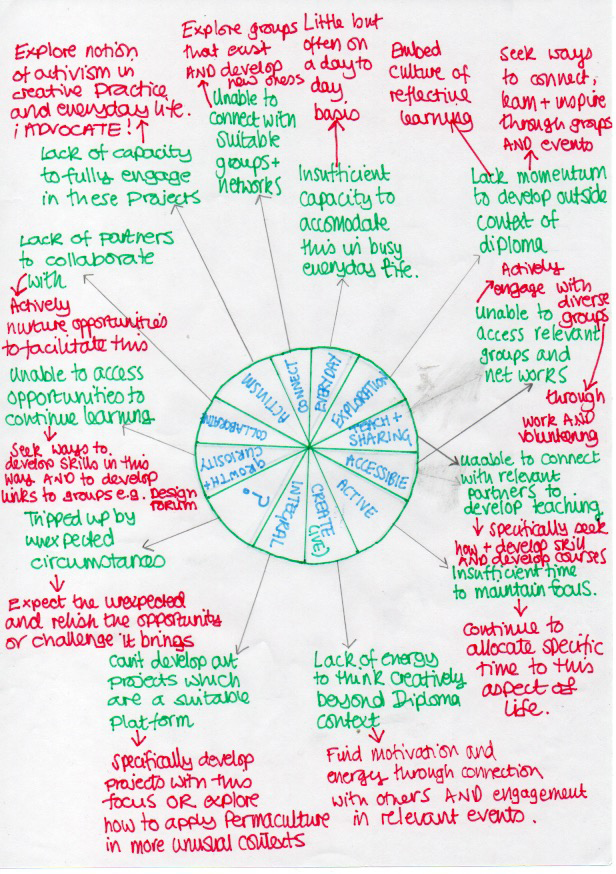 Explore notion
of activism in
creative Practice
and everyday life.
i ADVOCATE!
Lack of capacity
to fully engage
in these Projects
Explore groups
that exist
AND develop
new oness
Unable to
connect with
suitable
groups+
networks
Little but
often on
a day to
day
basis
Insufficient
capacity to
accomodate
this in busy
everyday life.
Embed
culture of
reflective
learning
Seek ways
to connect,
learn + inspire
through groups
AND events
Lack momentum
to develop outside
context of
diploma
Lack of Partners
to collaborate
with
Actively
nurture opportunities
to facilitate this
Actively
engage with
diverse
groups
through
work AND
volunteering
Unable to
access relevant
groups and
net works
Unable to access
opportunities to
continue learning
Seek ways to
develop skills in this
way AND to develop
links to groups e.g. Design
forum
ACTIVISM
CONNECT
EVERYDAY
EXPLORATION
TEACH +
SHARING
ACCESSIBLE
ACTIVE
CREATE
(IVE)
INTEGRAL
?
GROWTH +
CURIOSITY
COLLABORATIVE
unable to connect
with relevant
partners to
develop teaching
specifically seek
how + develop skill
AND develop courses
Tripped up by
unexpected
circumstances
Expect the unexpected
and relish the opportunity
or challenge it brings
Insufficient time
to maintain focus.
Continue to
allocate specific
time to this
aspect of
life.
can't develop out
projects which
are a suitable
platform
Specifically develop
projects with this
focus OR explore
how to apply Permaculture
in more unusual contexts
Lack of energy
to think creatively
beyond Diploma
context
Find motivation and
energy through connection
with others AND engagement
in relevant events.